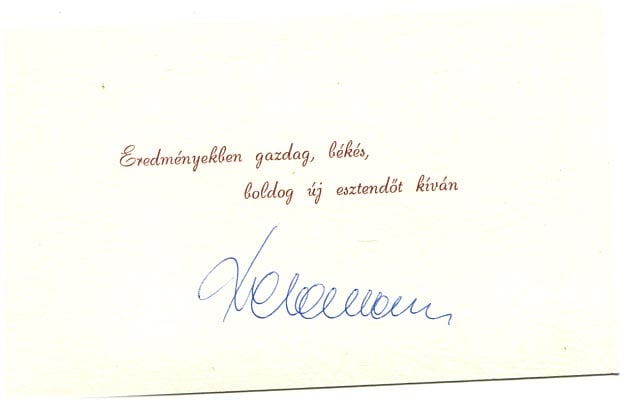 Eredményekben gazdag, békés,
boldog új esztendőt kíván